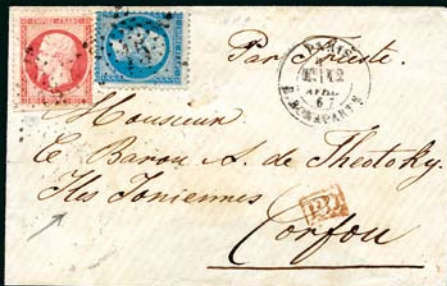 EMPIRE FRANC
Par Trieste
PARIS
12
AVRIL
67
R. BONAPARTE
Monsieur
Le Baron A. de Theotoky.
Iles Ioniennes
P.D.
Corfou